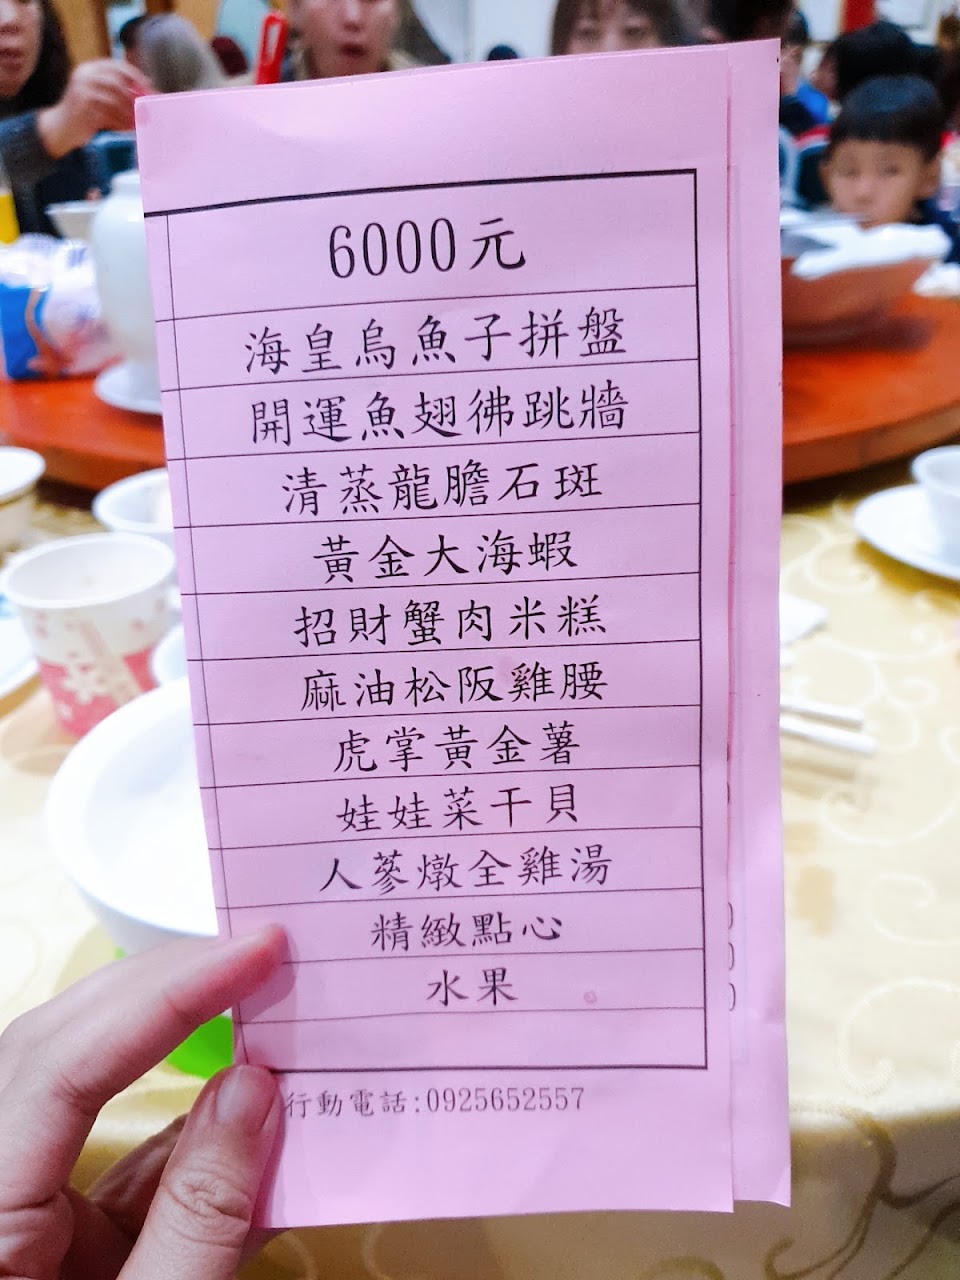 6000元
海皇烏魚子拼盤
開運魚翅彿跳牆
清蒸龍膽石斑
黃金大海蝦
招財蟹肉米糕
麻油松阪雞腰
虎掌黃金薯
娃娃菜干貝
人蔘燉全雞湯
精緻點心
水果
行動電話:0925652557